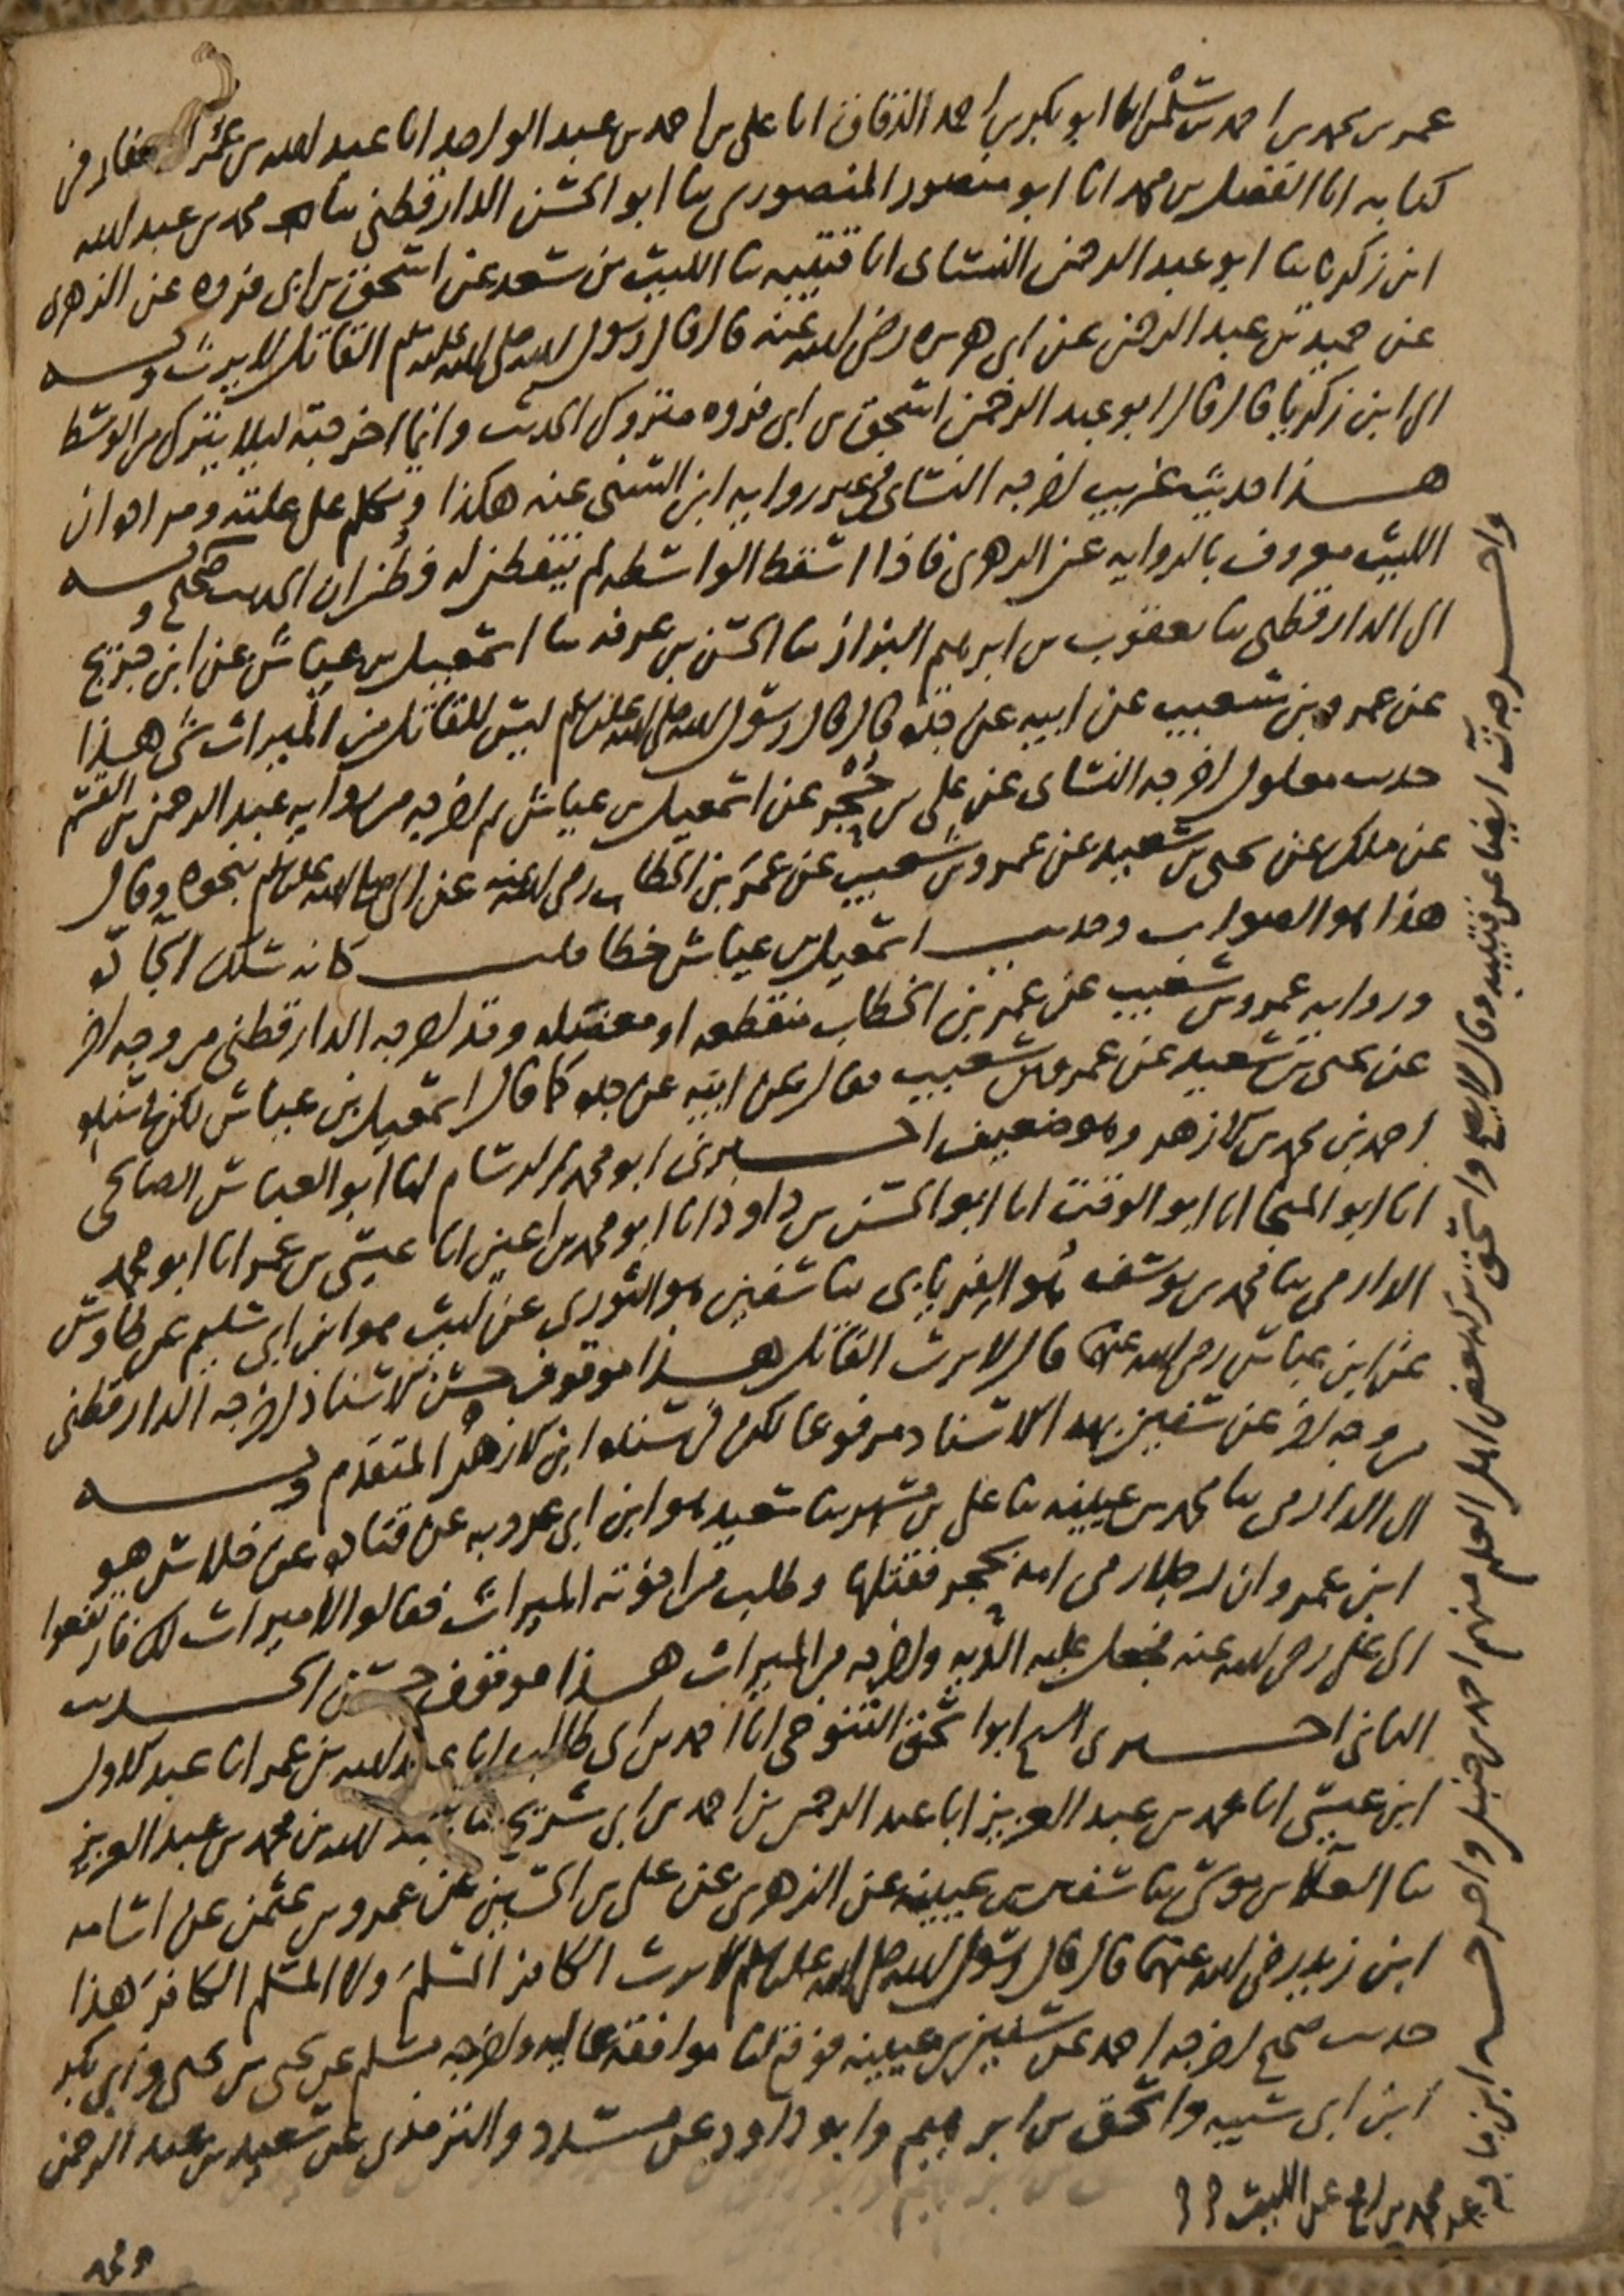 عمر بن محمد بن احمد بن سلمن انا ابو بكر بن احمد الدقاق انا علي بن احمد بن عبد الواحد انا عبد الله بن عمر الصفار في
كتابه انا الفضل بن محمد انا ابو منصور المنصوري ثنا ابو الحسن الدارقطني ثنا محمد بن عبد الله
ابن زكريا ثنا ابو عبد الرحمن النسائي انا قتيبه ثنا الليث بن سعد عن اسحق بن ابي فروه عن الزهري
عن حميد بن عبد الرحمن عن ابي هريره رضي الله عنه قال قال رسول الله صلى الله عليه وسلم القاتل لا يرث وبه
الى ابن زكريا قال قال ابو عبد الرحمن اسحق بن ابي فروه متروك الحديث وانما اخرجته ليلا يترك من الوسط
هذا حديث غريب اخرجه النسائي في غير روايه ابن السني عنه هكذا وتكلم على علته ومراده ان
الليث معروف بالروايه عن الزهري فاذا اسقط الواسطه لم يتفطن له فظن ان الحديث صحيح وبه
الى الدارقطني ثنا يعقوب بن ابرهيم البزاز ثنا الحسن بن عرفه ثنا اسمعيل بن عياش عن ابن جريج
عن عمرو بن شعيب عن ابيه عن جده قال قال رسول الله صلى الله عليه وسلم ليس للقاتل من الميراث شي هذا
حديث معلول اخرجه النسائي عن علي بن حجر عن اسمعيل بن عياش ثم اخرجه من روايه عبد الرحمن بن القسم
عن ملك عن يحيى بن سعيد عن عمرو بن شعيب عن عمر بن الخطاب رضي الله عنه عن النبي صلى الله عليه وسلم بنحوه وقال
هذا هو الصواب وحديث اسمعيل بن عياش خطا قلت كانه سلك الجاده
وروايه عمرو بن شعيب عن عمر بن الخطاب منقطعه او معضله وقد اخرجه الدارقطني من وجه اخر
عن يحيى بن سعيد عن عمرو بن شعيب فقال عن ابيه عن جده كما قال اسمعيل بن عياش لكن في سنده
احمد بن محمد بن الازهر وهو ضعيف اخبرني ابو محمد بن الرسام انا ابو العباس الصالحي
انا ابو المنجا انا ابو الوقت انا ابو الحسن بن داود انا ابو محمد بن اعين انا عيسى بن عمر انا ابو محمد
الدارمي ثنا محمد بن يوسف هو الفريابي ثنا سفين هو الثوري عن ليث هو ابن ابي سليم عن طاوس
عن ابن عباس رضي الله عنهما قال لا يرث القاتل هذا موقوف حسن الاسناد اخرجه الدارقطني
من وجه اخر عن سفين بهذا الاسناد مرفوعا لكن في سنده ابن الازهر المتقدم وبه
الى الدارمي ثنا محمد بن عيينه ثنا علي بن مسهر ثنا سعيد هو ابن ابي عروبه عن قتاده عن خلاس هو
ابن عمرو ان رجلا رمى امه بحجر فقتلها وطلب من اخوته الميراث فقالوا لا ميراث لك فارتفعوا
الى علي رضي الله عنه فجعل عليه الديه واخرجه من الميراث هذا موقوف حسن الحديث
الثاني اخبرني الشيخ ابو اسحق التنوخي انا احمد بن ابي طالب انا عبد الله بن عمر انا عبد الاول
ابن عيسى انا محمد بن عبد العزيز انا عبد الرحمن بن احمد بن ابي شريح ثنا عبد الله بن محمد بن عبد العزيز
ثنا العلا بن موسى ثنا سفين بن عيينه عن الزهري عن علي بن الحسين عن عمرو بن عثمن عن اسامه
ابن زيد رضي الله عنهما قال قال رسول الله صلى الله عليه وسلم لا يرث الكافر المسلم ولا المسلم الكافر هذا
حديث صحيح اخرجه احمد عن سفين بن عيينه فوقع لنا موافقه عاليه واخرجه مسلم عن يحيى بن يحيى وابي بكر
ابن ابي شيبه واسحق بن ابرهيم وابو داود عن مسدد والترمذي عن سعيد بن عبد الرحمن
ومحمد
واخرجه ت ايضا عن قتيبه وقال لا يصح واسحق تركه بعض اهل العلم منهم احمد بن حنبل واخرجه ابن ماجه
عن محمد بن رمح عن الليث